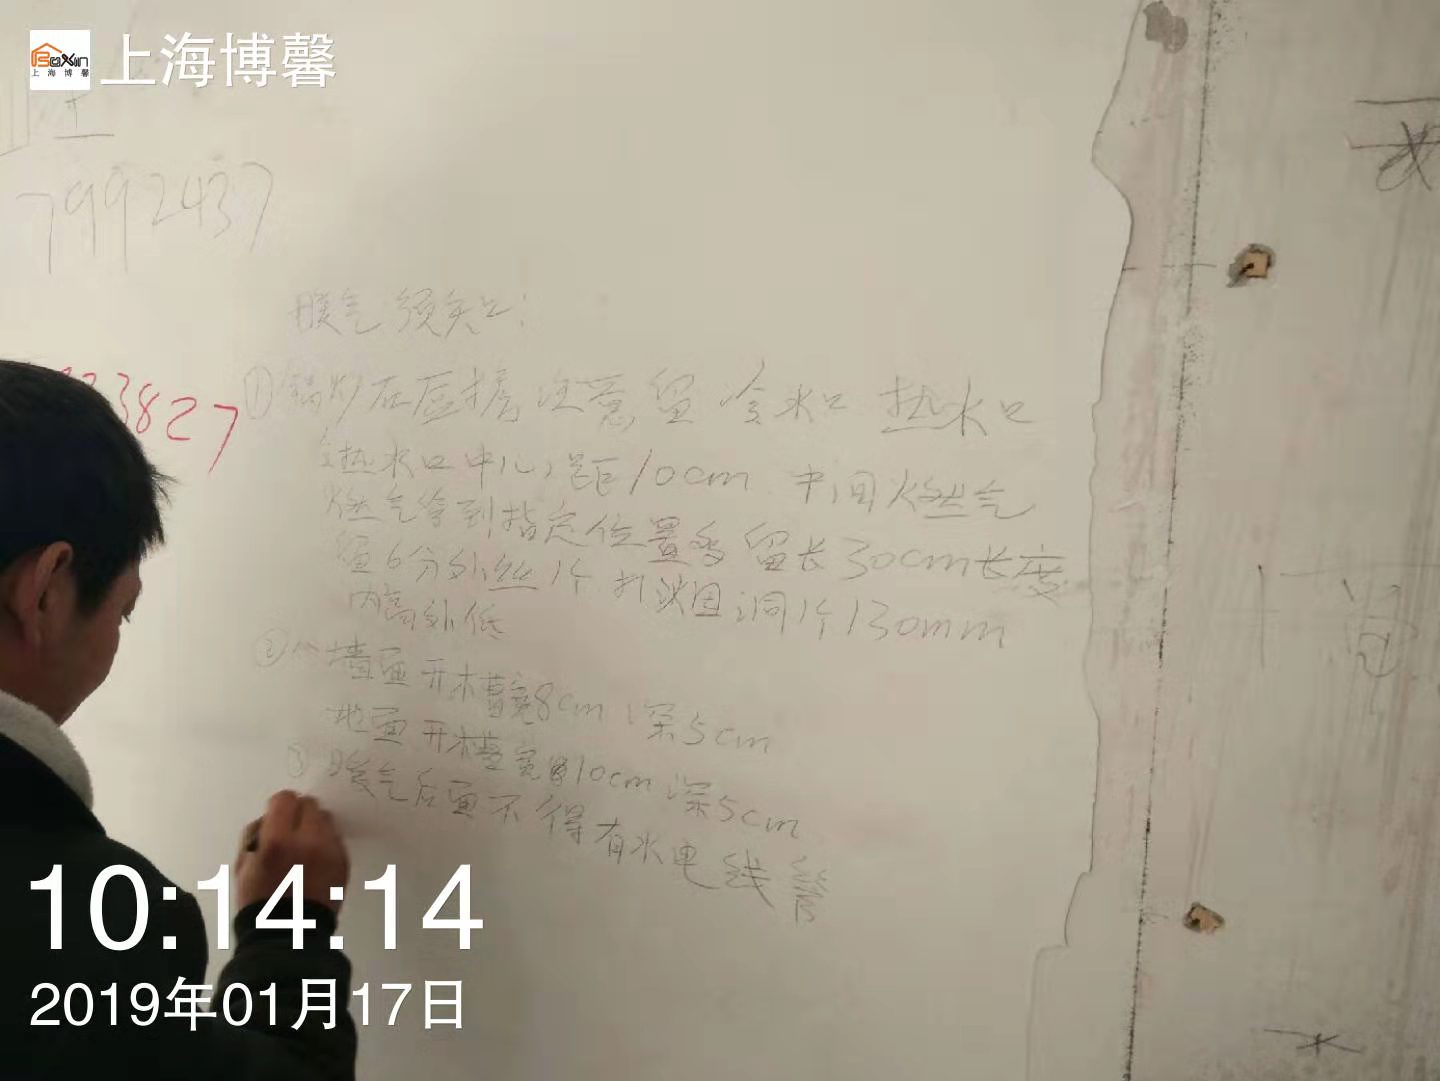 Boxin
上海博馨
上海博馨
7992437
3827
暖气须知:
①锅炉在底 注意留冷水口 热水口
热水口中心距10cm 中间燃气
燃气拿到指定位置 留长30cm长度
留6分外丝1个 打烟囱洞1个130mm
内高外低
② 墙面开槽宽8cm 深5cm
地面开槽宽10cm 深5cm
③暖气后面不得有水电线管
10:14:14
2019年01月17日